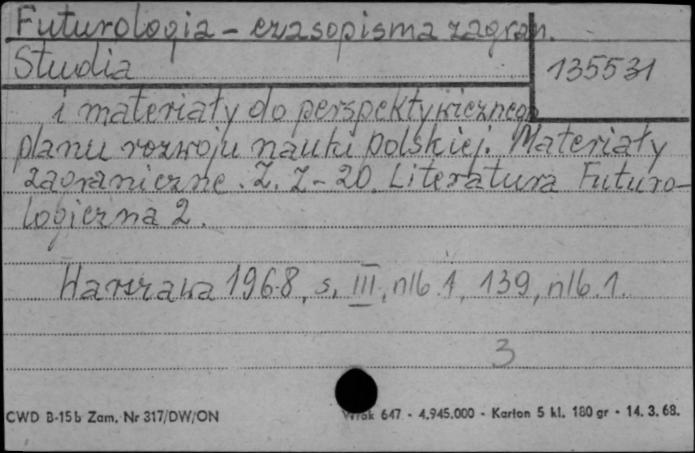 Futurologia - czasopisma zagran.
Studia
135531
i materiały do perspektywicznego
planu rozwoju nauki polskiej. Materiały
zagraniczne. Z. Z-20. Literatura Futuro-
logiczna 2.
Warszawa 1968, s. III, nlb. 1, 139, nlb. 1.
3
CWD B-15b Zam. Nr 317/DW/ON
647 - 4.945.000 - Karton 5 kl. 180 gr - 14. 3. 68.